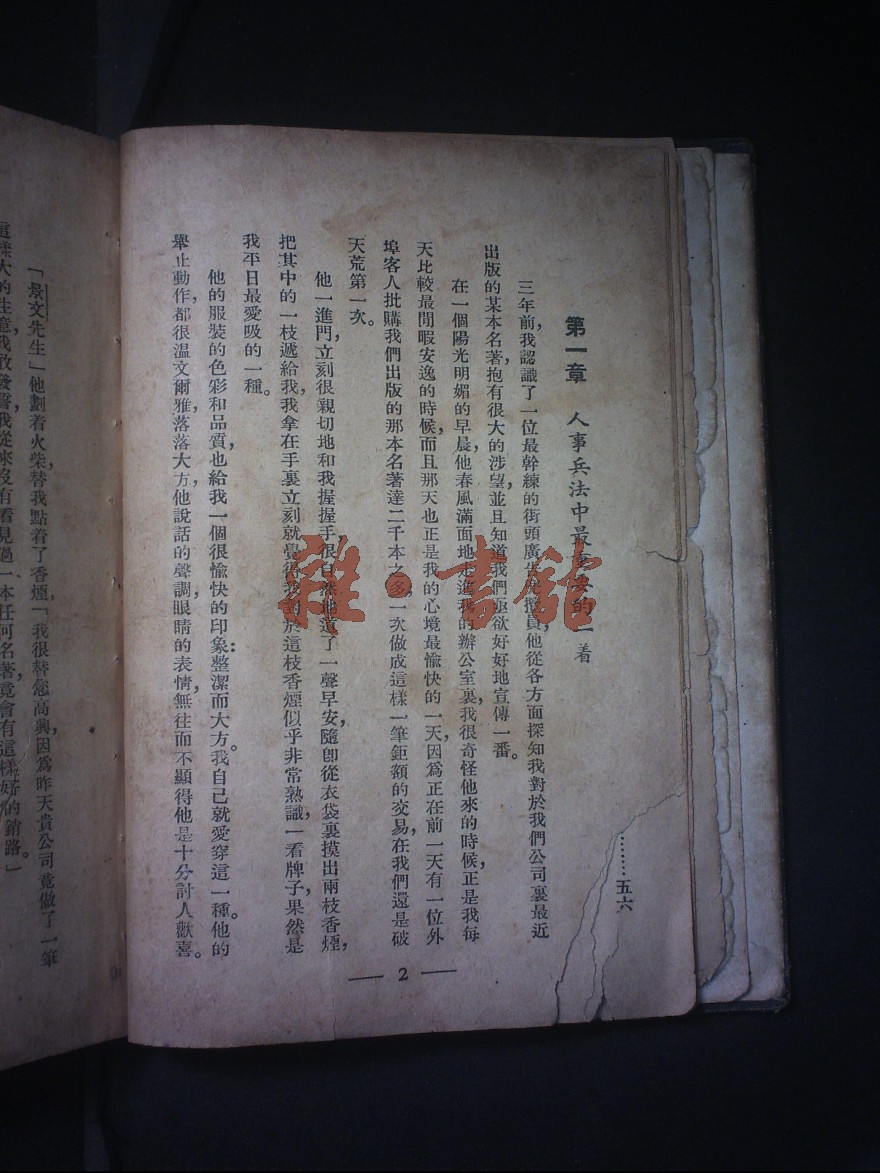 ………五六
第一章 人事兵法中最重要的一着
三年前,我認識了一位最幹練的街頭廣告兜攬員,他從各方面探知我對於我們公司裏最近
出版的某本名著,抱有很大的涉望,並且知道我們極欲好好地宣傳一番。
在一個陽光明媚的早晨,他春風滿面地走進我的辦公室裏,我很奇怪他來的時候,正是我每
天比較最閒暇安逸的時候,而且那天也正是我的心境最愉快的一天,因爲正在前一天有一位外
埠客人批購我們出版的那本名著達二千本之多,一次做成這樣一筆鉅額的交易,在我們還是破
天荒第一次。
他一進門,立刻很親切地和我握握手,很自然地道了一聲早安,隨卽從衣袋裏摸出兩枝香煙,
把其中的一枝遞給我,我拿在手裏立刻就覺得我對於這枝香煙似乎非常熟識,一看牌子,果然是
我平日最愛吸的一種。
他的服裝的色彩和品質,也給我一個很愉快的印象:整潔而大方。我自己就愛穿這一種。他的
舉止動作,都很溫文爾雅,落落大方,他說話的聲調,眼睛的表情,無往而不顯得他是十分討人歡喜。
— 2 —
「景文先生」他劃着火柴,替我點着了香煙,「我很替您高興,因爲昨天貴公司竟做了一筆
這樣大的生意,我敢發誓,我從來沒有看見過一本任何名著,竟會有這樣好的銷路。」
雜·書館